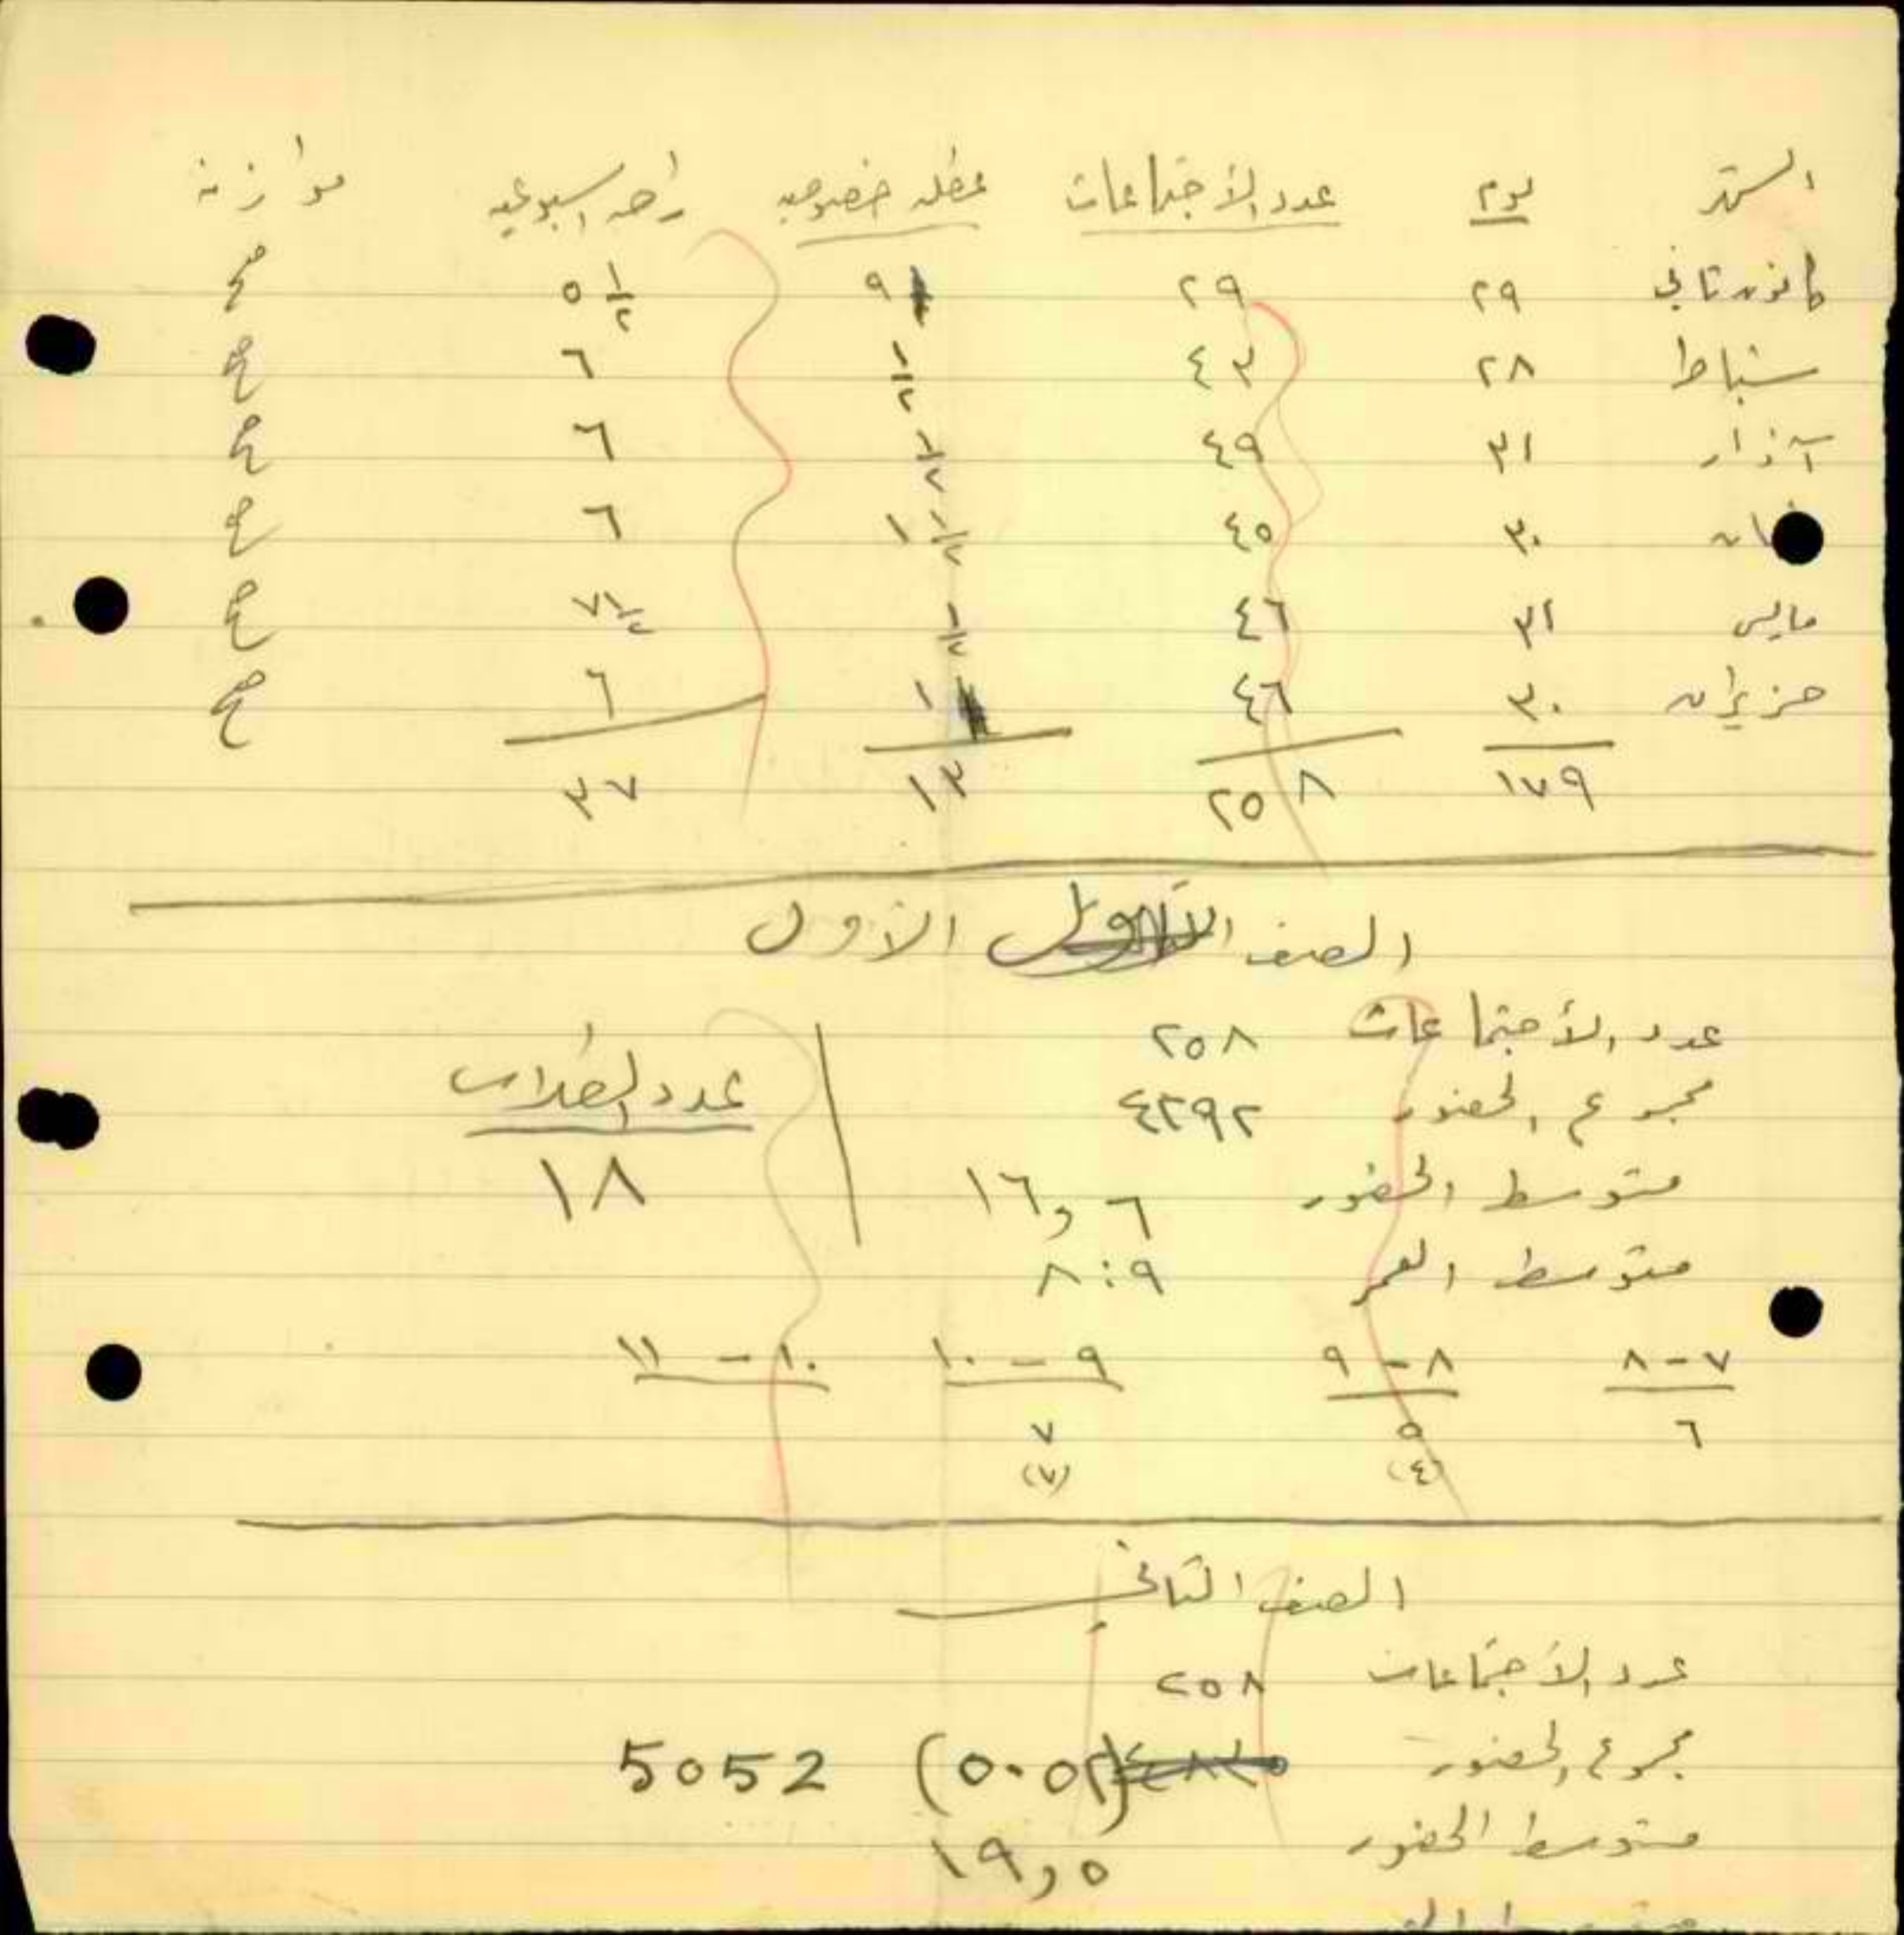 الشهر يوم عدد الأجتماعات عطله خصوصيه راحه اسبوعيه موازنة
كانون ثاني ٢٩ ٢٩ ٩ ٥ ١/٢ صح
شباط ٢٨ ٤٣ ١/٢ ٦ صح
آذار ٣١ ٤٩ ١/٢ ٦ صح
سان ٣٠ ٤٥ ١ ١/٢ ٦ صح
مايس ٣١ ٤٦ ١/٢ ٧ ١/٢ صح
حزيران ٣٠ ٤٦ ١ ٦ صح
١٧٩ ٢٥٨ ١٣ ٣٧
الصف الأول
عدد الأجتماعات ٢٥٨
مجموع الحضور ٤٢٩٢
متوسط الحضور ١٦,٦
متوسط العمر ٨:٩
عدد الطلاب
١٨
٧-٨ ٨-٩ ٩-١٠ ١٠-١١
٦ ٥ ٧
(٤) (٧)
الصف الثاني
عدد الأجتماعات ٢٥٨
مجموع الحضور (٥٠٥٢) 5052
متوسط الحضور ١٩,٥